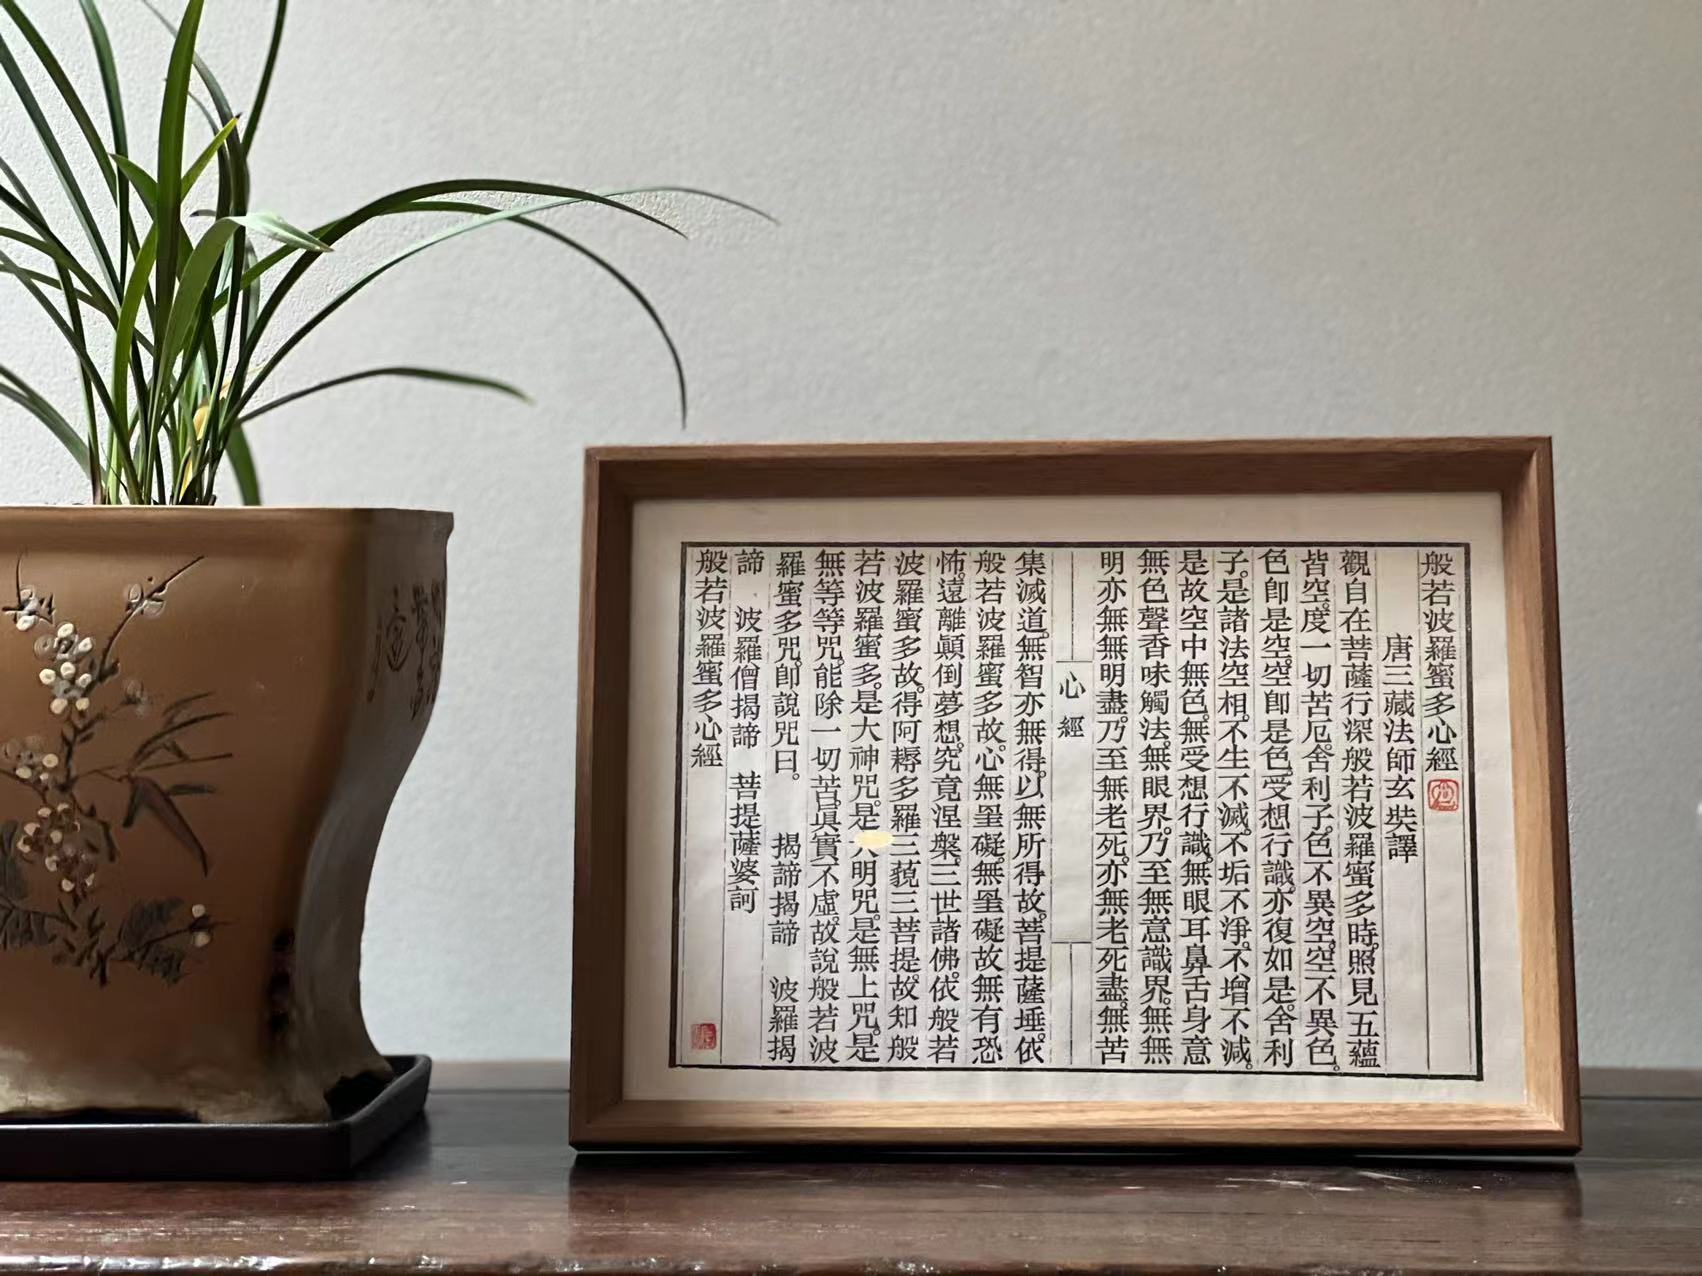 般若波羅蜜多心經
唐三藏法師玄奘譯
觀自在菩薩行深般若波羅蜜多時。照見五蘊
皆空。度一切苦厄。舍利子。色不異空。空不異色。
色卽是空。空卽是色。受想行識。亦復如是。舍利
子。是諸法空相。不生不滅。不垢不淨。不增不減。
是故空中無色。無受想行識。無眼耳鼻舌身意
無色聲香味觸法。無眼界。乃至無意識界。無無
明亦無無明盡。乃至無老死。亦無老死盡。無苦
心經
集滅道。無智亦無得。以無所得故。菩提薩埵。依
般若波羅蜜多故。心無罣礙。無罣礙故無有恐
怖。遠離顛倒夢想。究竟涅槃。三世諸佛。依般若
波羅蜜多故。得阿耨多羅三藐三菩提。故知般
若波羅蜜多。是大神咒。是明咒。是無上咒。是
無等等咒。能除一切苦。眞實不虛。故說般若波
羅蜜多咒。卽說咒曰。 揭諦揭諦 波羅揭
諦 波羅僧揭諦 菩提薩婆訶
般若波羅蜜多心經